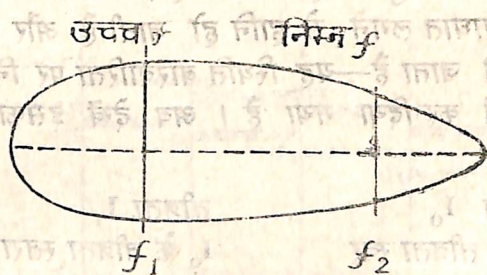 उच्च f निम्न f
f₁ f₂